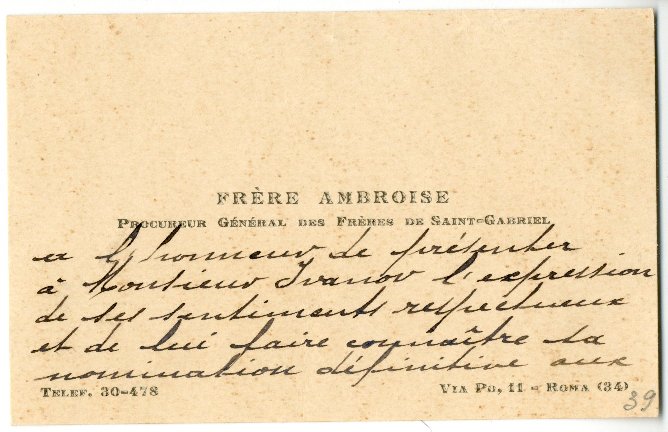 FRÈRE AMBROISE
PROCUREUR GÉNÉRAL DES FRÈRES DE SAINT-GABRIEL
a l'honneur de présenter
à Monsieur Ivanov l'expression
de ses sentiments respectueux
et de lui faire connaître sa
nomination définitive aux
TELEF. 30-478
VIA PO, 11 - ROMA (34)
39